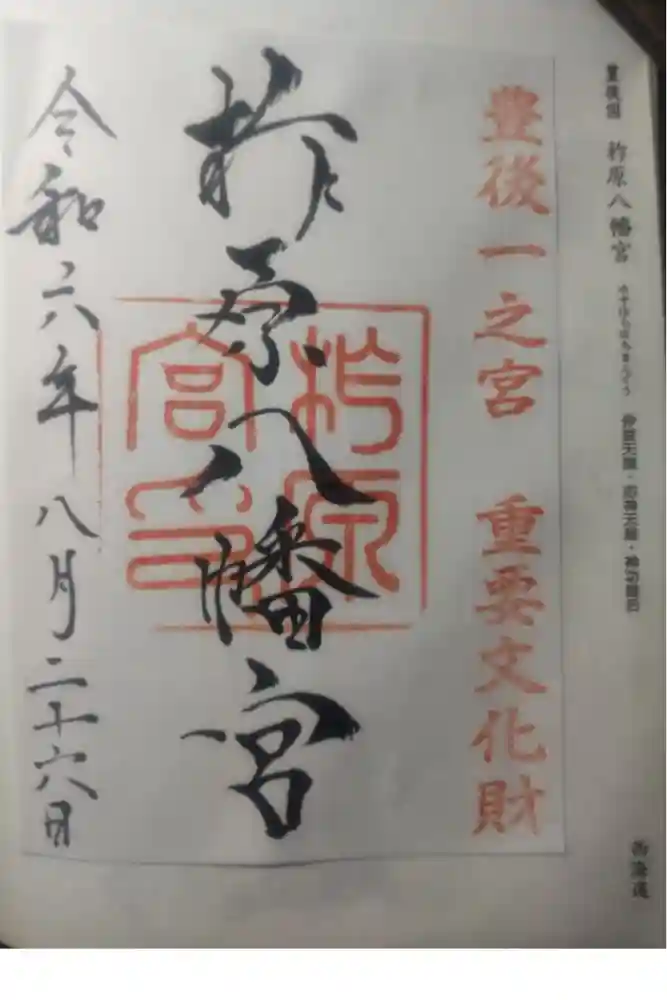 豊後国 柞原八幡宮 ゆすはらはちまんぐう 仲哀天皇・応神天皇・神功皇后
西海道
豊後一之宮 重要文化財
柞原八幡宮
柞原
宮印
令和六年八月二十六日